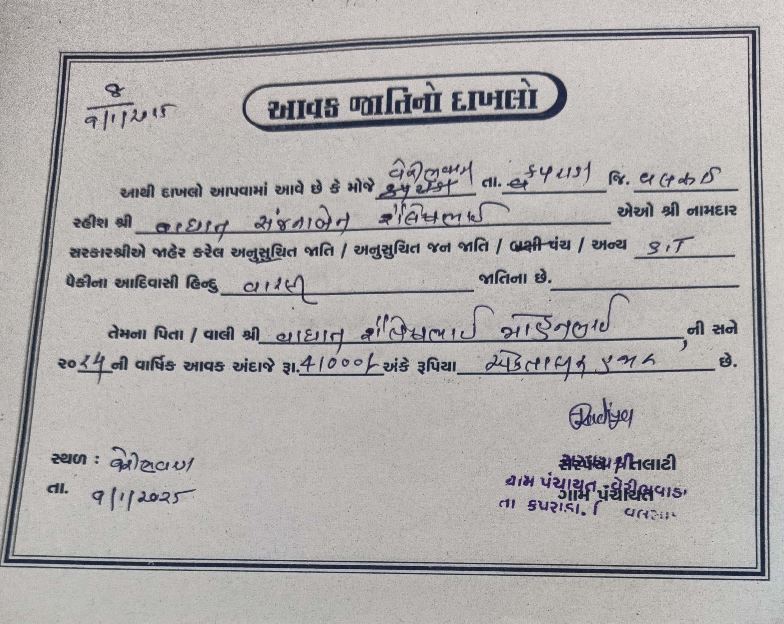 ૪
૧/૧/૨૦૨૫
આવક જાતિનો દાખલો
આથી દાખલો આપવામાં આવે છે કે મોજે વેરીભવાડા તા. કપરાડા જિ. વલસાડ
રહીશ શ્રી સંજનાબેન શૈલેષભાઈ એઓ શ્રી નામદાર
સરકારશ્રીએ જાહેર કરેલ અનુસુચિત જાતિ / અનુસુચિત જન જાતિ / બક્ષી પંચ / અન્ય S.T
પૈકીના આદિવાસી હિન્દુ વારલી જાતિના છે.
તેમના પિતા / વાલી શ્રી શૈલેષભાઈ ની સને
૨૦૨૪ ની વાર્ષિક આવક અંદાજે રૂા. 41000/- અંકે રૂપિયા એકતાલીસ હજાર છે.
સ્થળ : વેરીભવાડા
તલાટી
ગ્રામ પંચાયત વેરીભવાડા
ગ્રામ પંચાયત
તા. ૧/૧/૨૦૨૫
તા કપરાડા. જિ વલસાડ